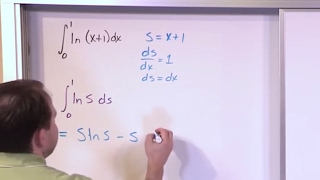 ∫₀¹ ln (x+1) dx   S = x+1
ds/dx = 1
ds = dx
∫₀¹ ln S ds
= S ln S − S